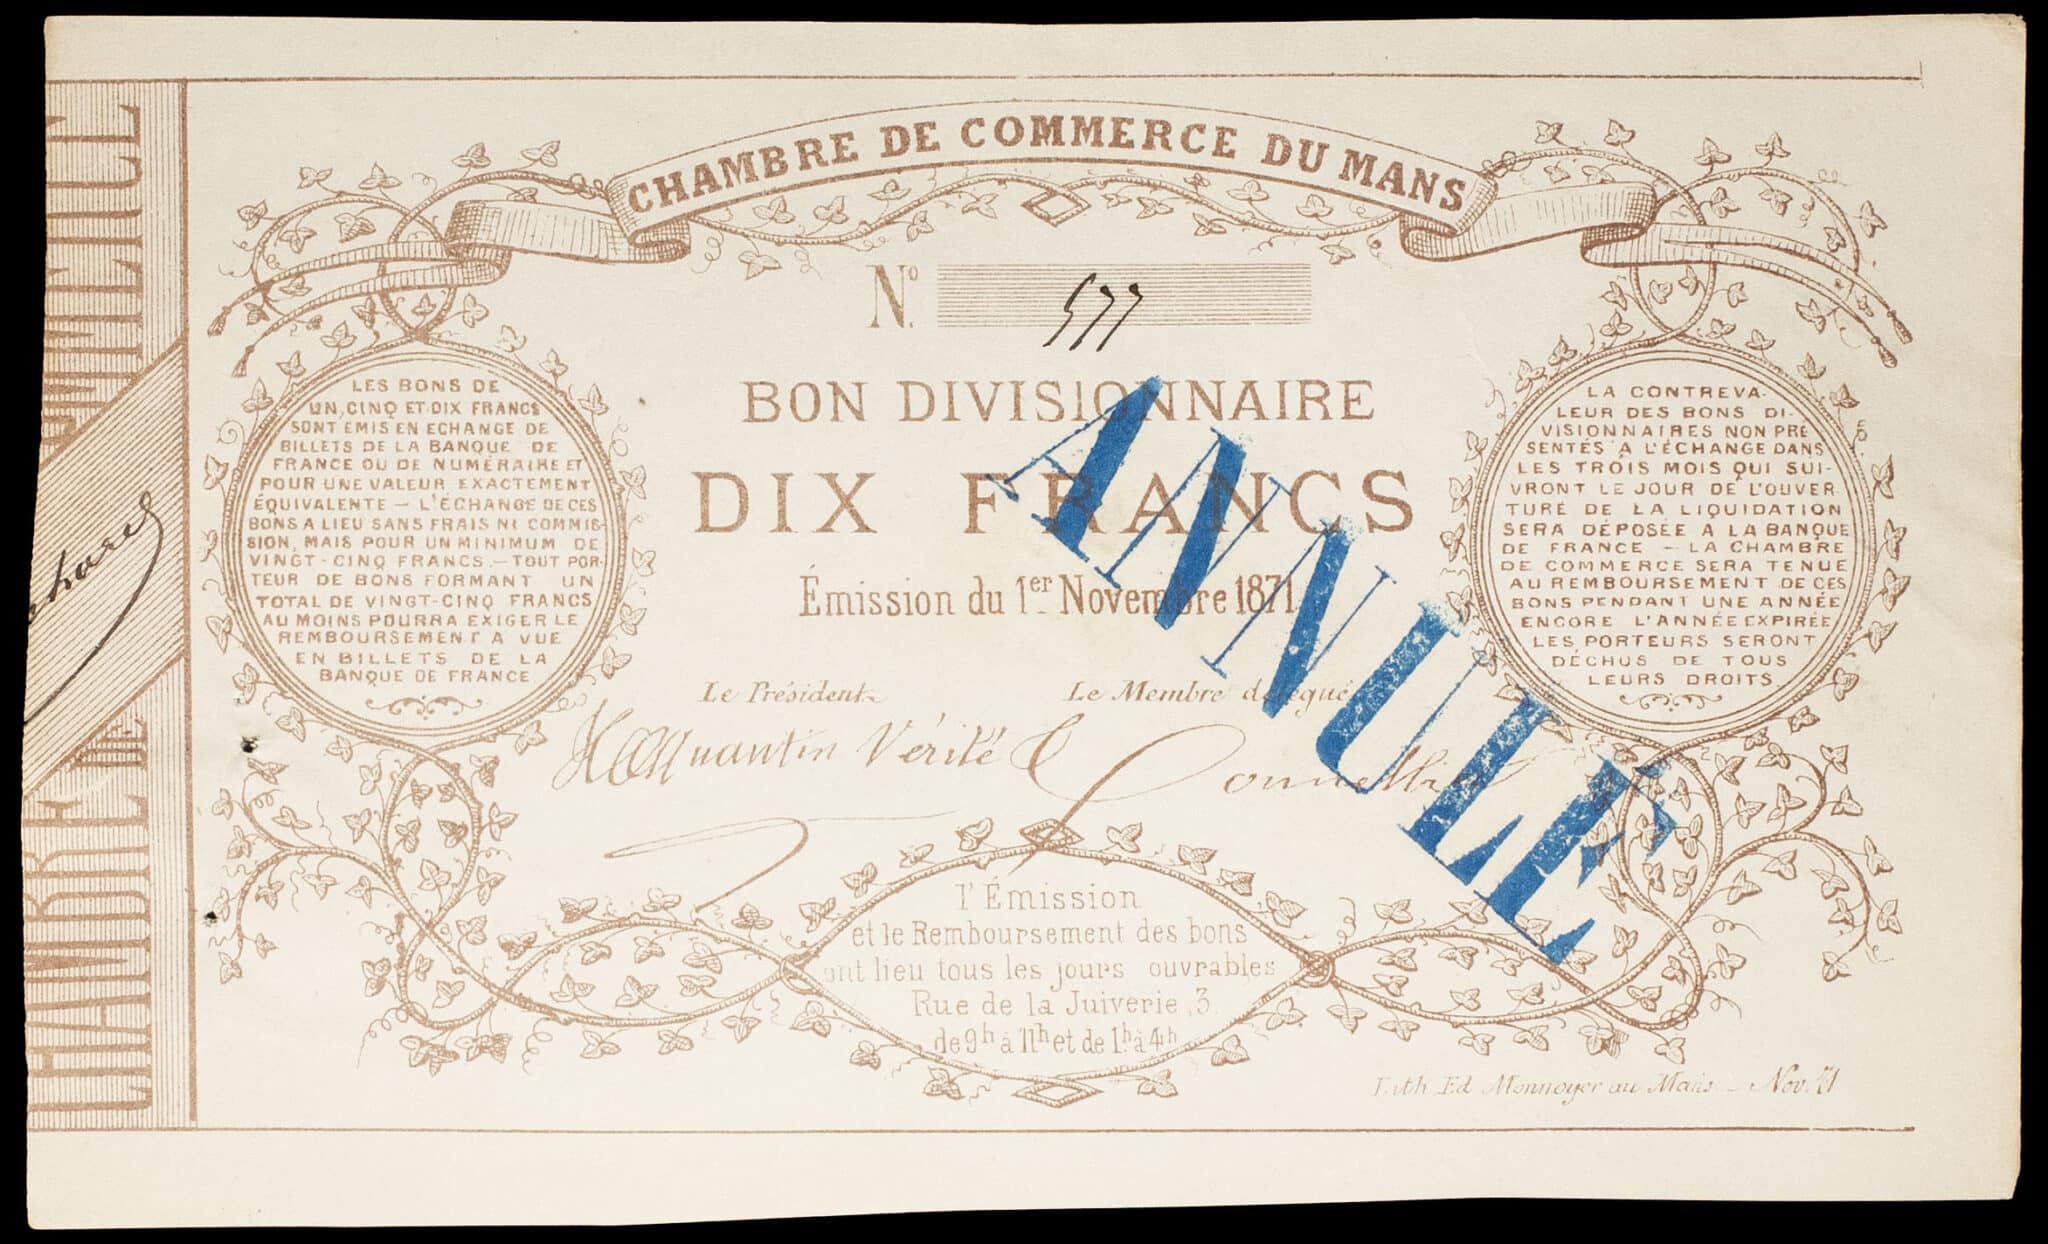 CHAMBRE DE COMMERCE DU MANS
N° 577
BON DIVISIONNAIRE
DIX FRANCS
Émission du 1er Novembre 1871
ANNULÉ
LES BONS DE
UN, CINQ ET DIX FRANCS
SONT EMIS EN ECHANGE DE
BILLETS DE LA BANQUE DE
FRANCE OU DE NUMÉRAIRE ET
POUR UNE VALEUR EXACTEMENT
ÉQUIVALENTE – L'ÉCHANGE DE CES
BONS A LIEU SANS FRAIS NI COMMIS-
SION, MAIS POUR UN MINIMUM DE
VINGT-CINQ FRANCS. – TOUT POR-
TEUR DE BONS FORMANT UN
TOTAL DE VINGT-CINQ FRANCS
AU MOINS POURRA EXIGER LE
REMBOURSEMENT A VUE
EN BILLETS DE LA
BANQUE DE FRANCE
LA CONTREVA-
LEUR DES BONS DI-
VISIONNAIRES NON PRÉ
SENTÉS A L'ÉCHANGE DANS
LES TROIS MOIS QUI SUI-
VRONT LE JOUR DE L'OUVER
TURE DE LA LIQUIDATION
SERA DÉPOSÉE A LA BANQUE
DE FRANCE – LA CHAMBRE
DE COMMERCE SERA TENUE
AU REMBOURSEMENT DE CES
BONS PENDANT UNE ANNÉE
ENCORE L'ANNÉE EXPIRÉE
LES PORTEURS SERONT
DÉCHUS DE TOUS
LEURS DROITS
Le Président
Le Membre délégué
Vérité
l'Émission
et le Remboursement des bons
ont lieu tous les jours ouvrables
Rue de la Juiverie, 3.
de 9h à 11h et de 1h à 4h
Lith Ed Monnoyer au Mans – Nov. 71
CHAMBRE DE